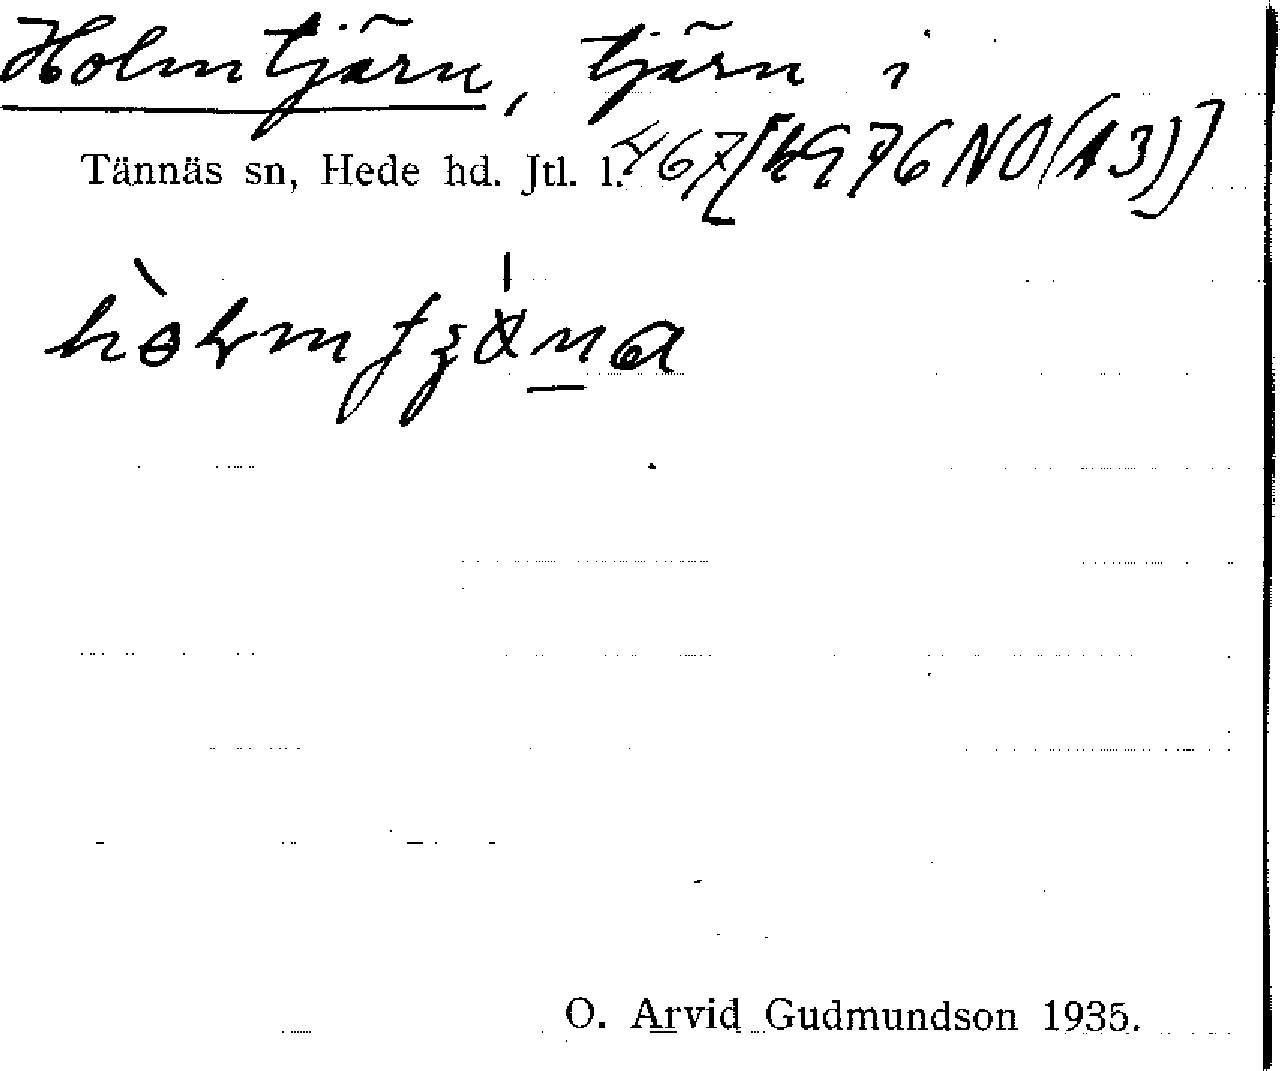 Holmtjärn, tjärn i
Tännäs sn, Hede hd. Jtl. l. 467 [4976 NO(13)]
O. Arvid Gudmundson 1935.